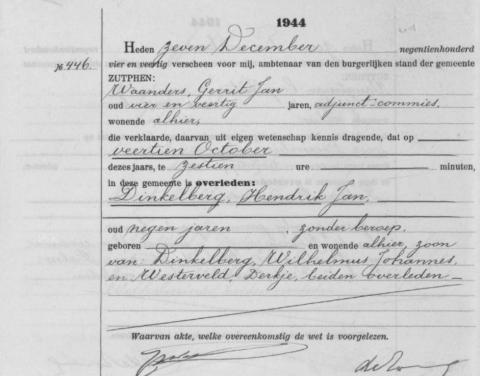 1944
Heden zeven December negentienhonderd
No. 446. vier en veertig verscheen voor mij, ambtenaar van den burgerlijken stand der gemeente
ZUTPHEN:
Waanders, Gerrit Jan
oud vier en veertig jaren, adjunct-commies,
wonende alhier,
die verklaarde, daarvan uit eigen wetenschap kennis dragende, dat op
veertien October
dezes jaars, te zestien ure minuten,
in deze gemeente is overleden:
Dinkelberg, Hendrik Jan,
oud negen jaren, zonder beroep,
geboren en wonende alhier, zoon
van Dinkelberg, Wilhelmus Johannes,
en Westerveld, Derkje, beiden overleden
Waarvan akte, welke overeenkomstig de wet is voorgelezen.